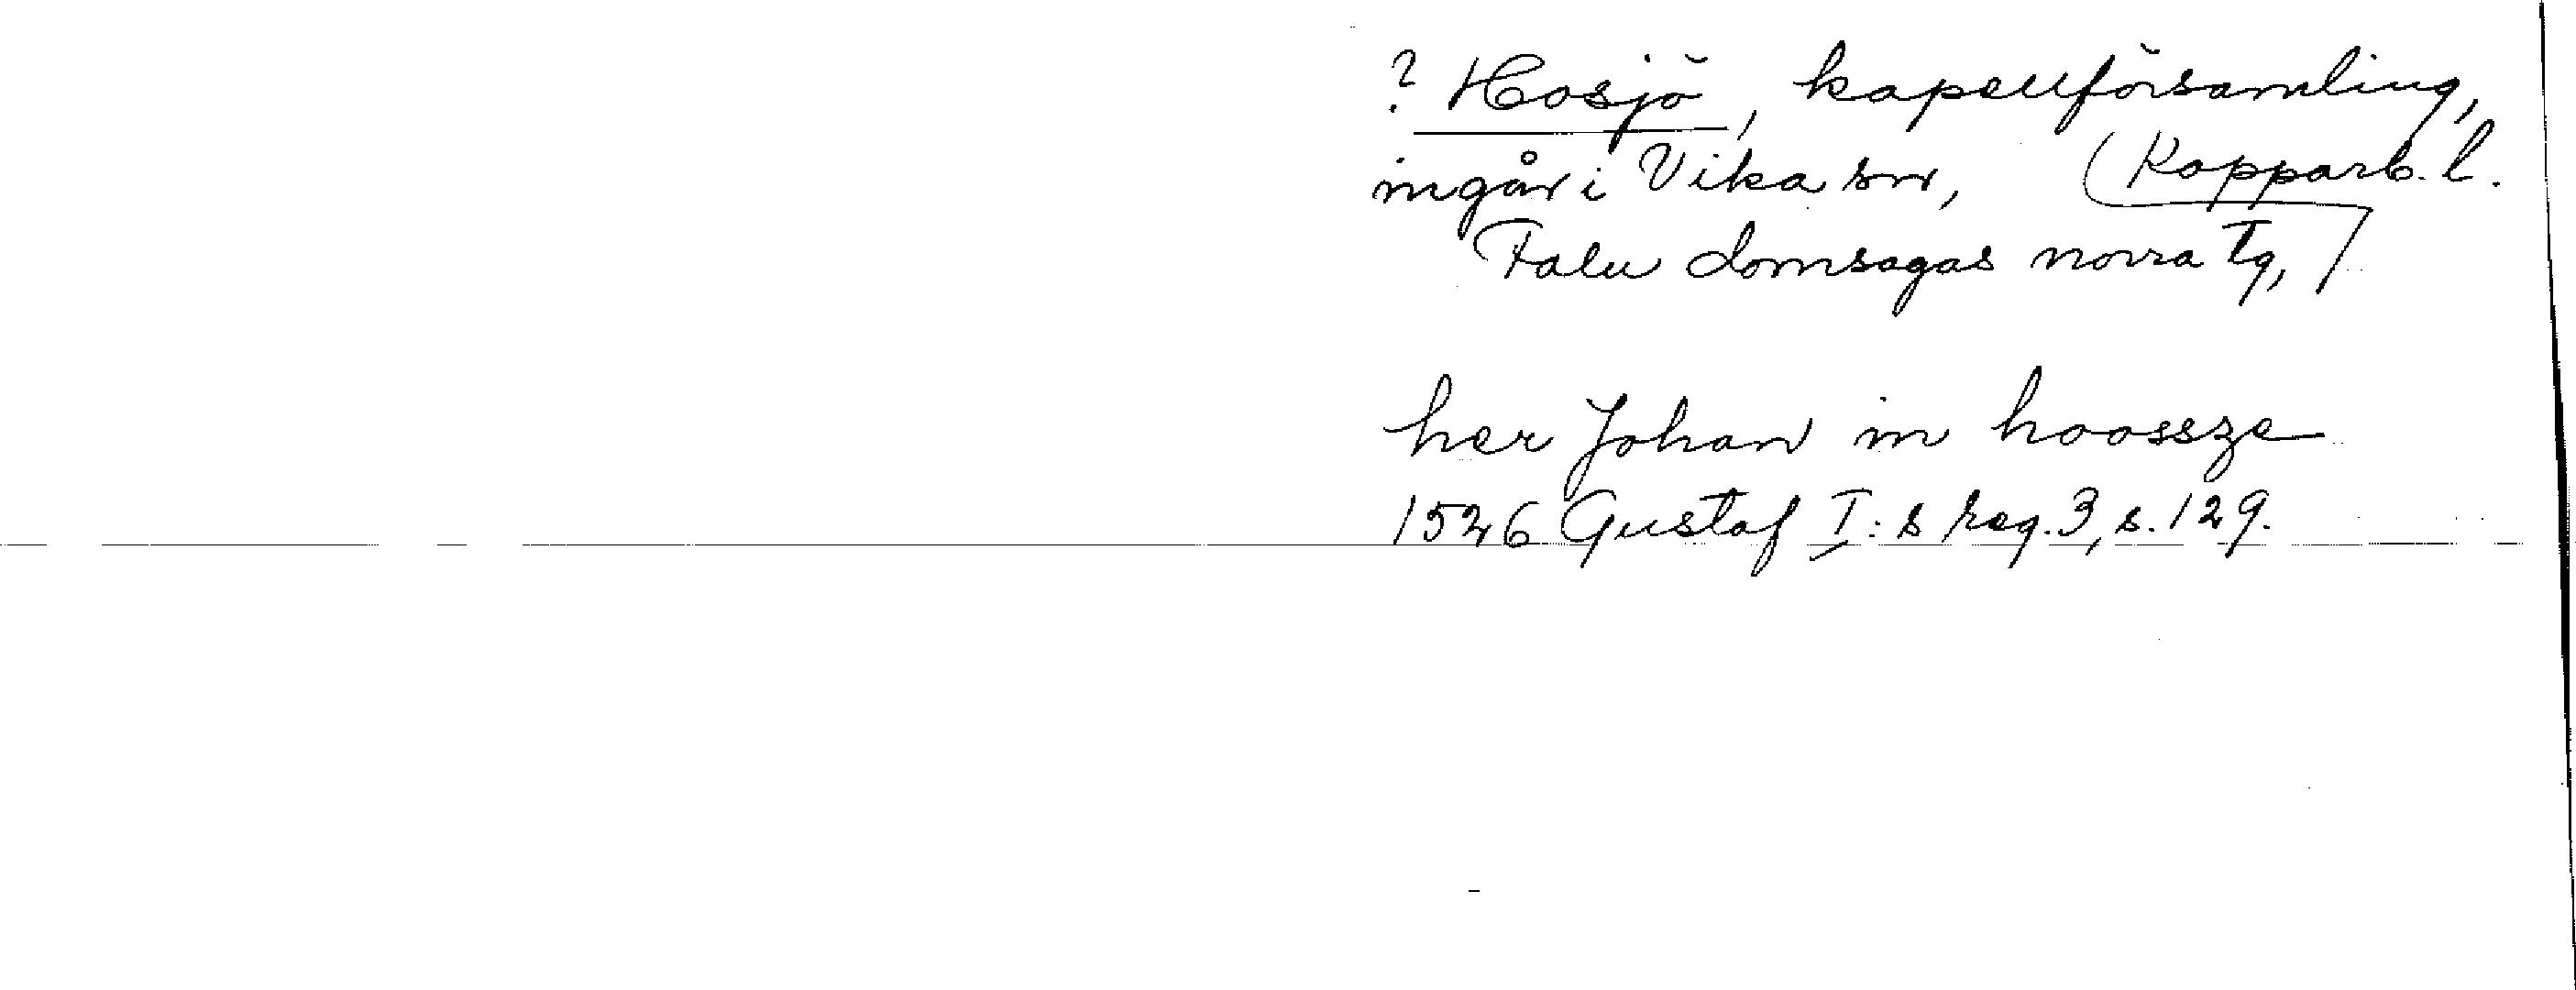 ? Hosjö, kapellförsamling,
ingår i Vika sn, Kopparb. l.
Falu domsagas norra Tg,
her Johan in hoossze
1526 Gustaf I:s reg. 3, s. 129.